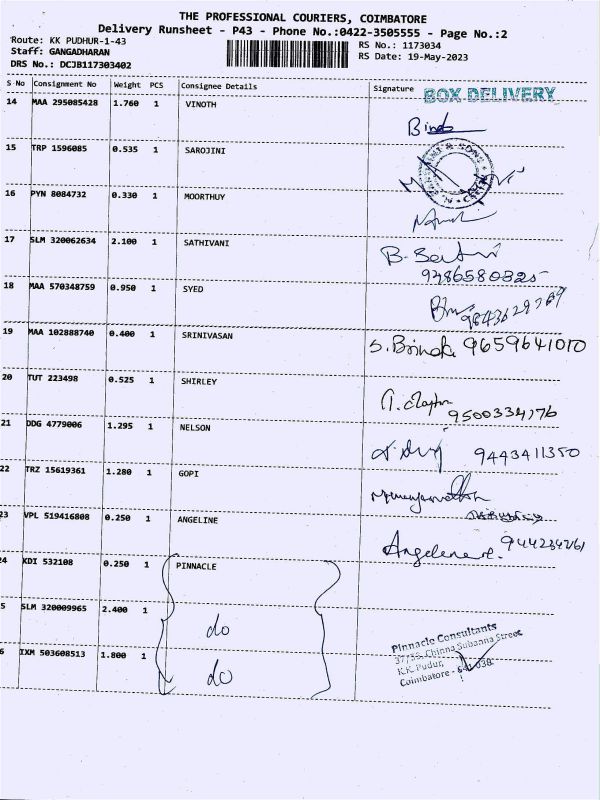 THE PROFESSIONAL COURIERS, COIMBATORE
Delivery Runsheet - P43 - Phone No.:0422-3505555 - Page No.:2
Route: KK PUDHUR-1-43
Staff: GANGADHARAN
DRS No.: DCJB117303402
RS No.: 1173034
RS Date: 19-May-2023
S No Consignment No Weight PCS Consignee Details Signature BOX DELIVERY
14 MAA 295085428 1.760 1 VINOTH
15 TRP 1596085 0.535 1 SAROJINI
16 PYN 8084732 0.330 1 MOORTHUY
17 SLM 320062634 2.100 1 SATHIVANI
9786580325
18 MAA 570348759 0.950 1 SYED
19 MAA 102888740 0.400 1 SRINIVASAN S. Brinda 9659641010
20 TUT 223498 0.525 1 SHIRLEY
9500334176
21 DDG 4779006 1.295 1 NELSON 9443411350
22 TRZ 15619361 1.280 1 GOPI
23 VPL 519416808 0.250 1 ANGELINE
24 KDI 532108 0.250 1 PINNACLE
5 SLM 320009965 2.400 1 do
6 IXM 503608513 1.800 1 do
Pinnacle Consultants
37/56, Chinna Subanna Street
K.K. Pudur,
Coimbatore - 641 038.